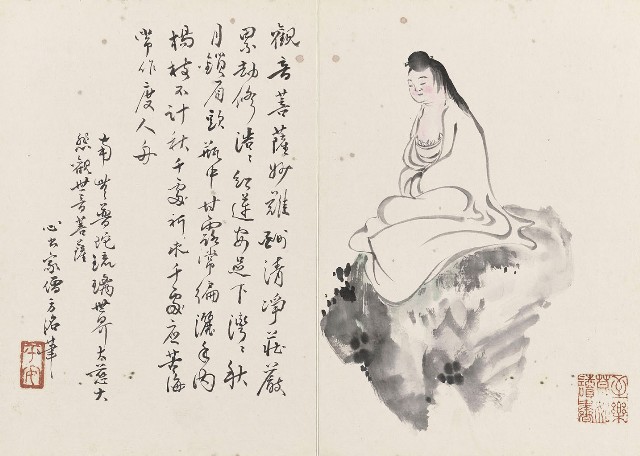 觀音菩薩妙難酧清淨莊嚴
累劫修浩〻紅蓮安足下灣〻秋
月鎖眉頭瓶中甘露常徧灑手內
楊枝不計秋千處祈求千處應苦海
常作度人舟
南無普陀琉璃世界大慈大
悲觀世音菩薩
心出家僧方筆
平安
至樂
莫如
讀書